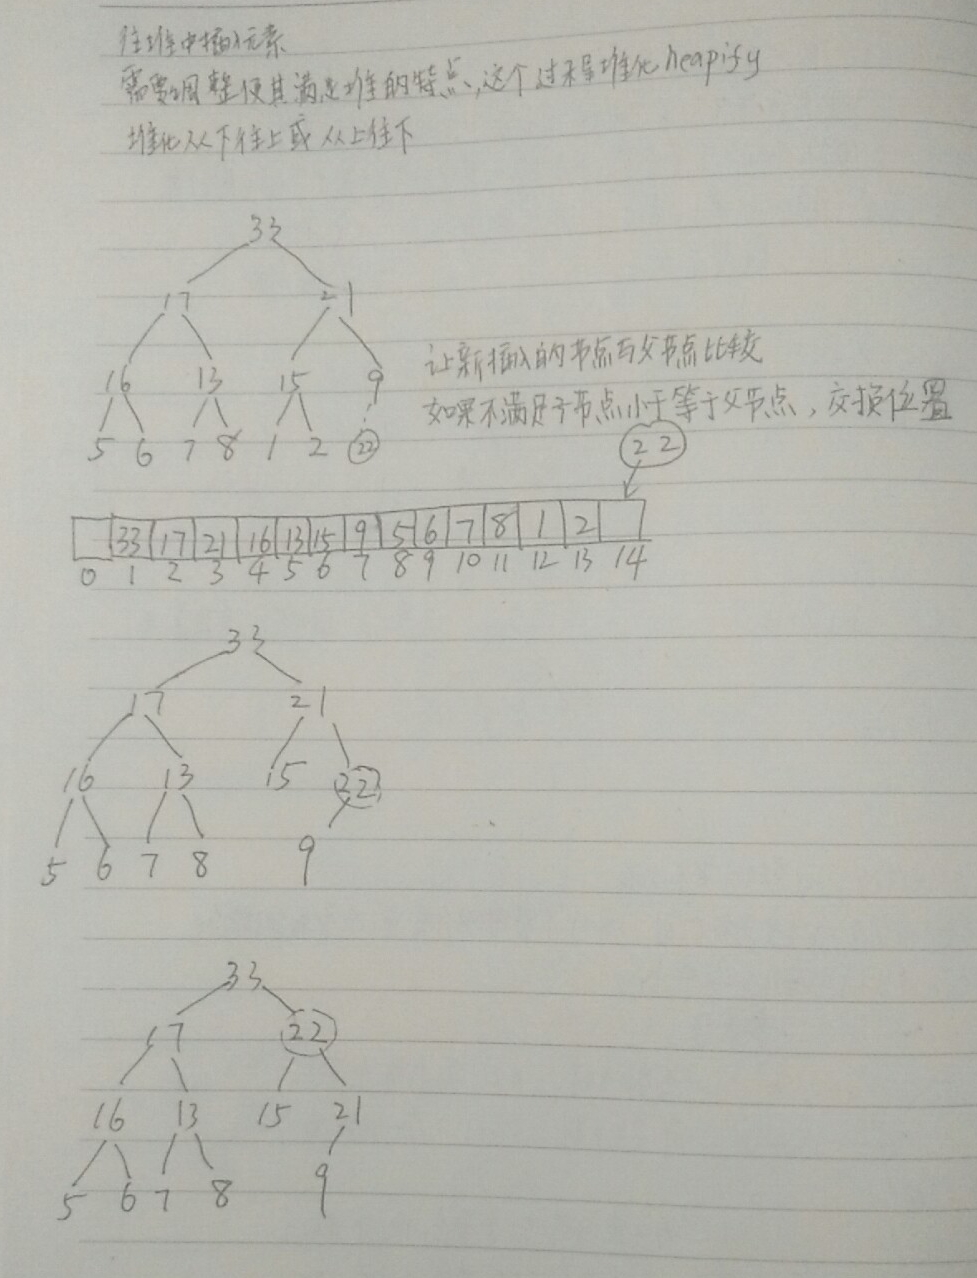 往堆中插入元素
需要调整使其满足堆的特点、这个过程堆化 heapify
堆化从下往上或从上往下
33
17 21
16 13 15 9
5 6 7 8 1 2 22
让新插入的节点与父节点比较
如果不满足子节点小于等于父节点，交换位置
22
33 17 21 16 13 15 9 5 6 7 8 1 2
0 1 2 3 4 5 6 7 8 9 10 11 12 13 14
33
17 21
16 13 15 22
5 6 7 8 9
33
17 22
16 13 15 21
5 6 7 8 9